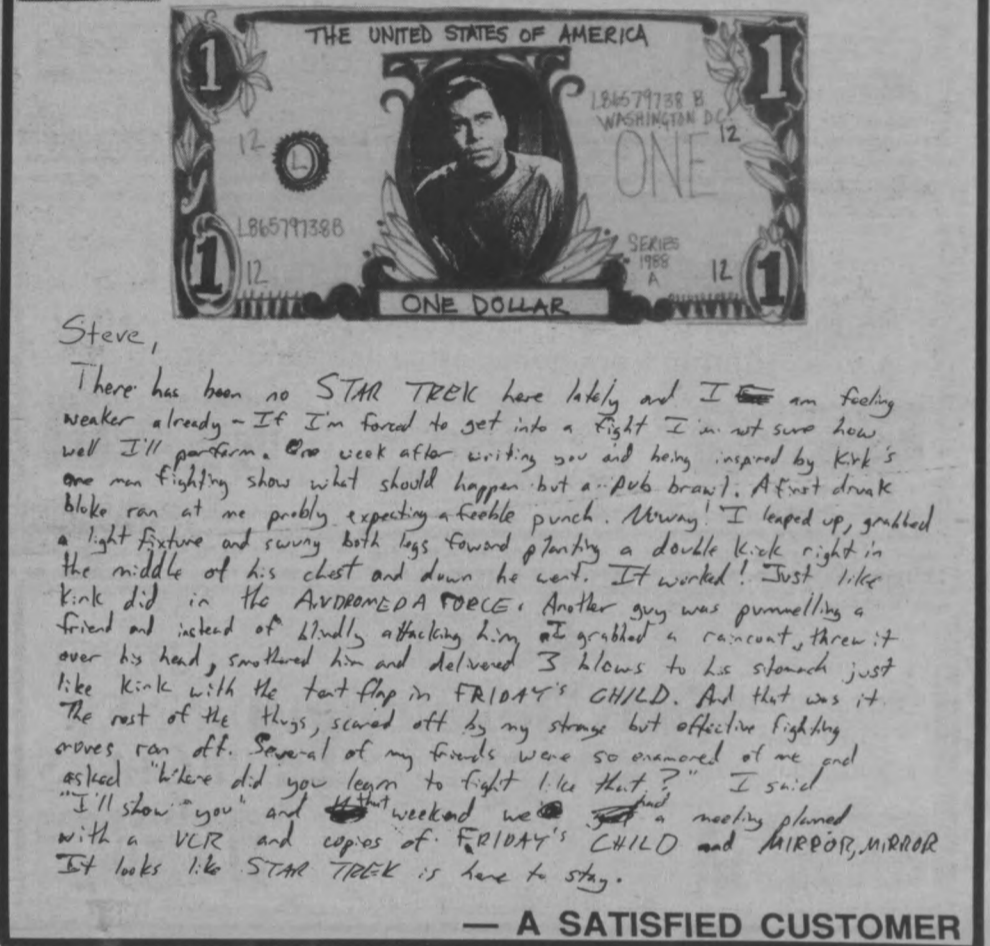 1
THE UNITED STATES OF AMERICA
1
L86579738 B
WASHINGTON D.C.
12
12
ONE
L
L86579738B
SERIES
1988
A
1
12
12
1
ONE DOLLAR
Steve,
There has been no STAR TREK here lately and I am feeling
weaker already - If I'm forced to get into a fight I'm not sure how
well I'll perform. One week after writing you and being inspired by Kirk's
one man fighting show what should happen but a pub brawl. A first drunk
bloke ran at me probly expecting a feeble punch. Noway! I leaped up, grabbed
a light fixture and swung both legs foward planting a double kick right in
the middle of his chest and down he went. It worked! Just like
Kirk did in the ANDROMEDA FORCE. Another guy was pummelling a
friend and instead of blindly attacking him I grabbed a raincoat, threw it
over his head, smothered him and delivered 3 blows to his stomach just
like Kirk with the tent flap in FRIDAY'S CHILD. And that was it
The rest of the thugs, scared off by my strange but effective fighting
moves ran off. Several of my friends were so enamored of me and
asked "Where did you learn to fight like that?" I said
"I'll show you" and that weekend we had a meeting planned
with a VCR and copies of FRIDAY'S CHILD and MIRROR, MIRROR
It looks like STAR TREK is here to stay.
— A SATISFIED CUSTOMER